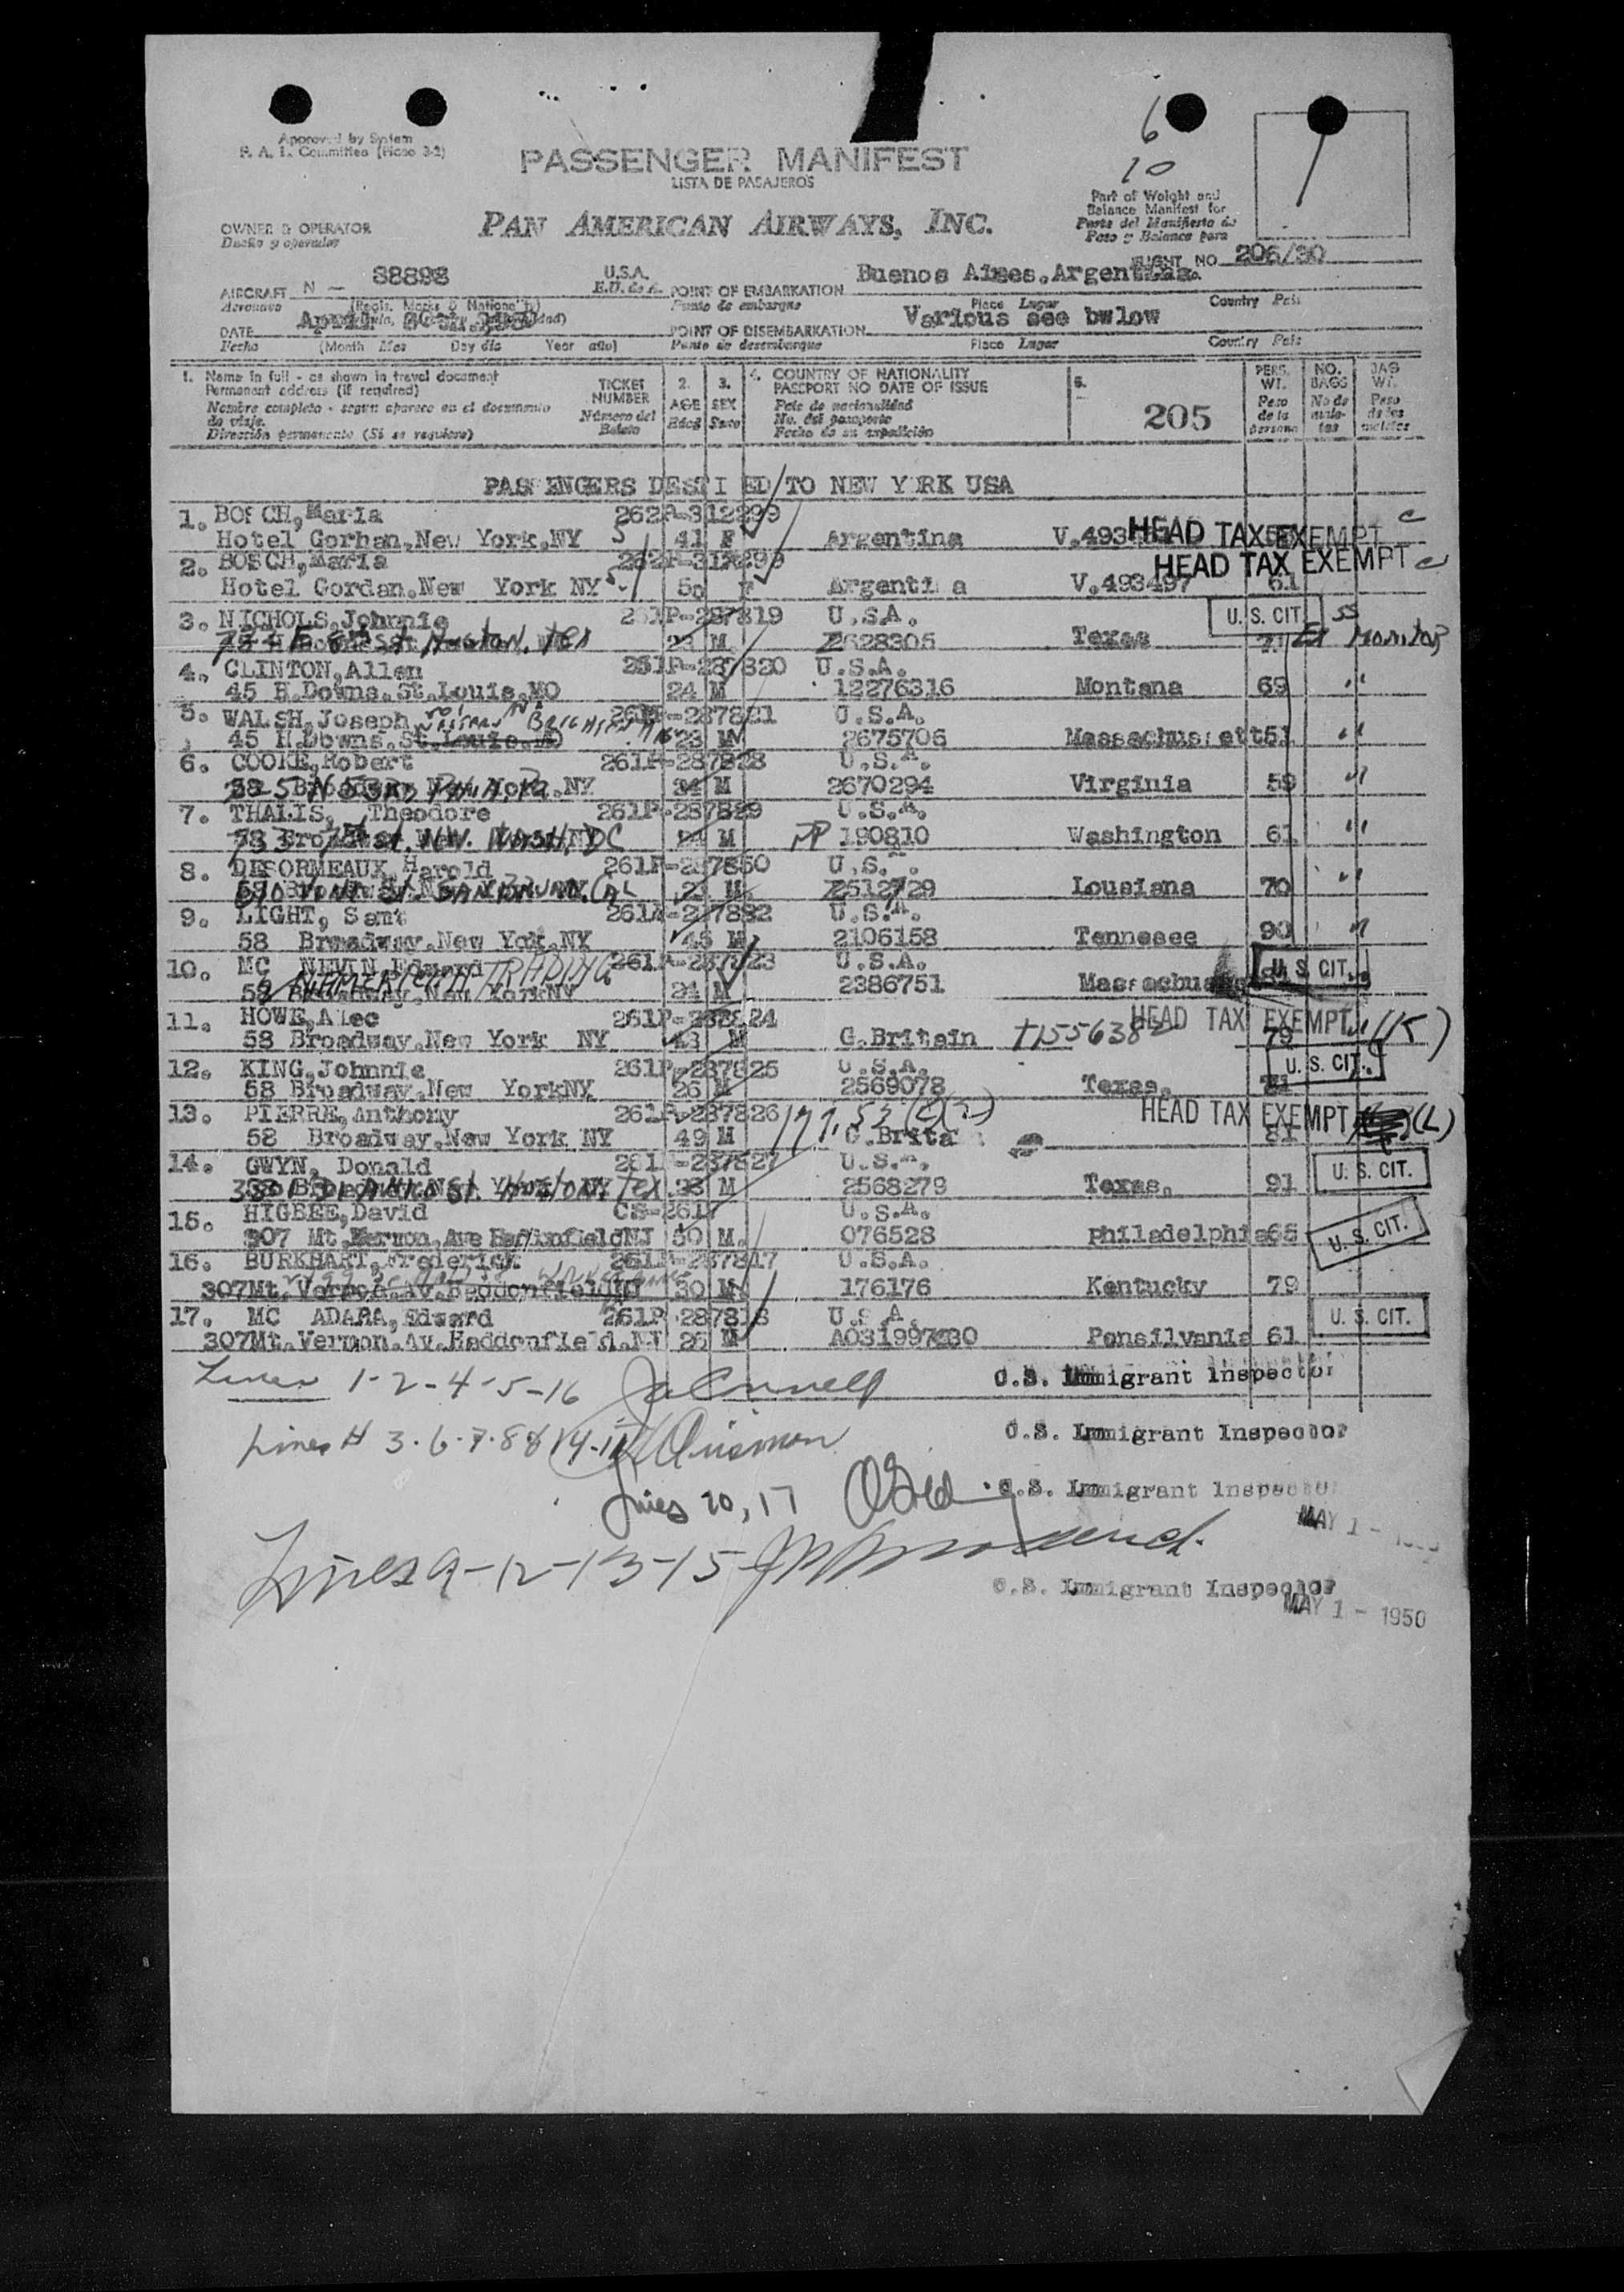 6
10
Approved by System
F. A. L. Committee (Picao 3-2)
PASSENGER MANIFEST
LISTA DE PASAJEROS
Part of Weight and
Balance Manifest for
Parte del Manifiesto de
Peso y Balance para
OWNER & OPERATOR
Dueño y operador
PAN AMERICAN AIRWAYS, INC.
FLIGHT NO. 206/30
AIRCRAFT N - 88898 U.S.A.
Aeronave E.U. de A.
POINT OF EMBARKATION Buenos Aires,Argentina.
Punto de embarque Place Lugar Country País
DATE April 30th 1950
Fecha (Month Mes Day día Year año)
POINT OF DISEMBARKATION Various see bwlow
Punto de desembarque Place Lugar Country País
1. Name in full - as shown in travel document
Permanent address (if required)
Nombre completo - segun aparece en el documento
de viaje.
Dirección permanente (Si se requiere)
TICKET
NUMBER
Número del
Boleto
2.
AGE
Edad
3.
SEX
Sexo
4. COUNTRY OF NATIONALITY
PASSPORT NO DATE OF ISSUE
País de nacionalidad
No. del pasaporte
Fecha de su expedición
205
PERS.
WT.
Peso
de la
persona
NO.
BAGS
No de
male-
tas
BAG
WT.
Peso
de las
maletas
PASSENGERS DESTI ED TO NEW Y RK USA
1. BOSCH,Maria 262P-312299
Hotel Gorhan,New York,NY 41 F Argentina HEAD TAX EXEMPT c
2. BOSCH,Maria 262P-312299 HEAD TAX EXEMPT c
Hotel Gordan.New York NY 50 F Argenti a V.493497 61
3. NICHOLS,Johnnie 261P-287819 U.S.A. U. S. CIT. SS
Houston, Tex 23 M 2628305 Texas 71
4. CLINTON,Allen 261P-287820 U.S.A.
45 H.Downs.St.Louis,MO 24 M 12276316 Montana 69 "
5. WALSH,Joseph 261P-287821 U.S.A.
45 H.Downs.St.Louis.MO 23 M 2675706 Massachussett 51 "
6. COOKE,Robert 261P-287828 U.S.A.
24 M 2670294 Virginia 59 "
7. THALIS, Theodore 261P-287829 U.S.A.
N.W. WASH. DC 24 M 190810 Washington 61 "
8. DESORMEAUX,Harold 261P-287830 U.S.A.
23 M 2512729 Lousiana 70 "
9. LIGHT, Sam 261P-287832 U.S.A.
58 Broadway,New Yok,NY 45 M 2106158 Tennesee 90 "
10. MC NEVIN,Edward 261P-287823 U.S.A. U. S. CIT.
58 Broadway,New YorkNY 24 M 2386751
11. HOWE,Alec 261P-287824 HEAD TAX EXEMPT (K)
58 Broadway.New York NY 43 M G.Britain 79
12. KING,Johnnie 261P-287825 U.S.A. U. S. CIT.
58 Broadway.New YorkNY 26 M 2569078 Texas.
13. PIERRE,Anthony 261P-287826 HEAD TAX EXEMPT (L)
58 Broadway,New York NY 49 M G.Brita 81
14. GWYN, Donald 261P-287827 U.S.A. U. S. CIT.
Houston Tex. 23 M 2568279 Texas. 91
15. HIGBEE,David CS-261 U.S.A.
307 Mt.Vernon,Ave HaddonfieldNJ 50 M. 076528 Philadelphia 65 U. S. CIT.
16. BURKHART,Frederick 261P-287817 U.S.A.
307Mt.Vernon.Av.HaddonfieldNJ 30 M 176176 Kentucky 79
17. MC ADARA,Edward 261P-287818 U.S.A. U. S. CIT.
307Mt.Vernon.Av.Haddonfield.NJ 26 M Pensilvania 61
Lines 1-2-4-5-16 U.S. Immigrant Inspector
Lines # 3.6.7.8 & 14-11 U.S. Immigrant Inspector
Lines 10, 17 U.S. Immigrant Inspector
MAY 1 -
Lines 9-12-13-15 U.S. Immigrant Inspector
MAY 1 - 1950